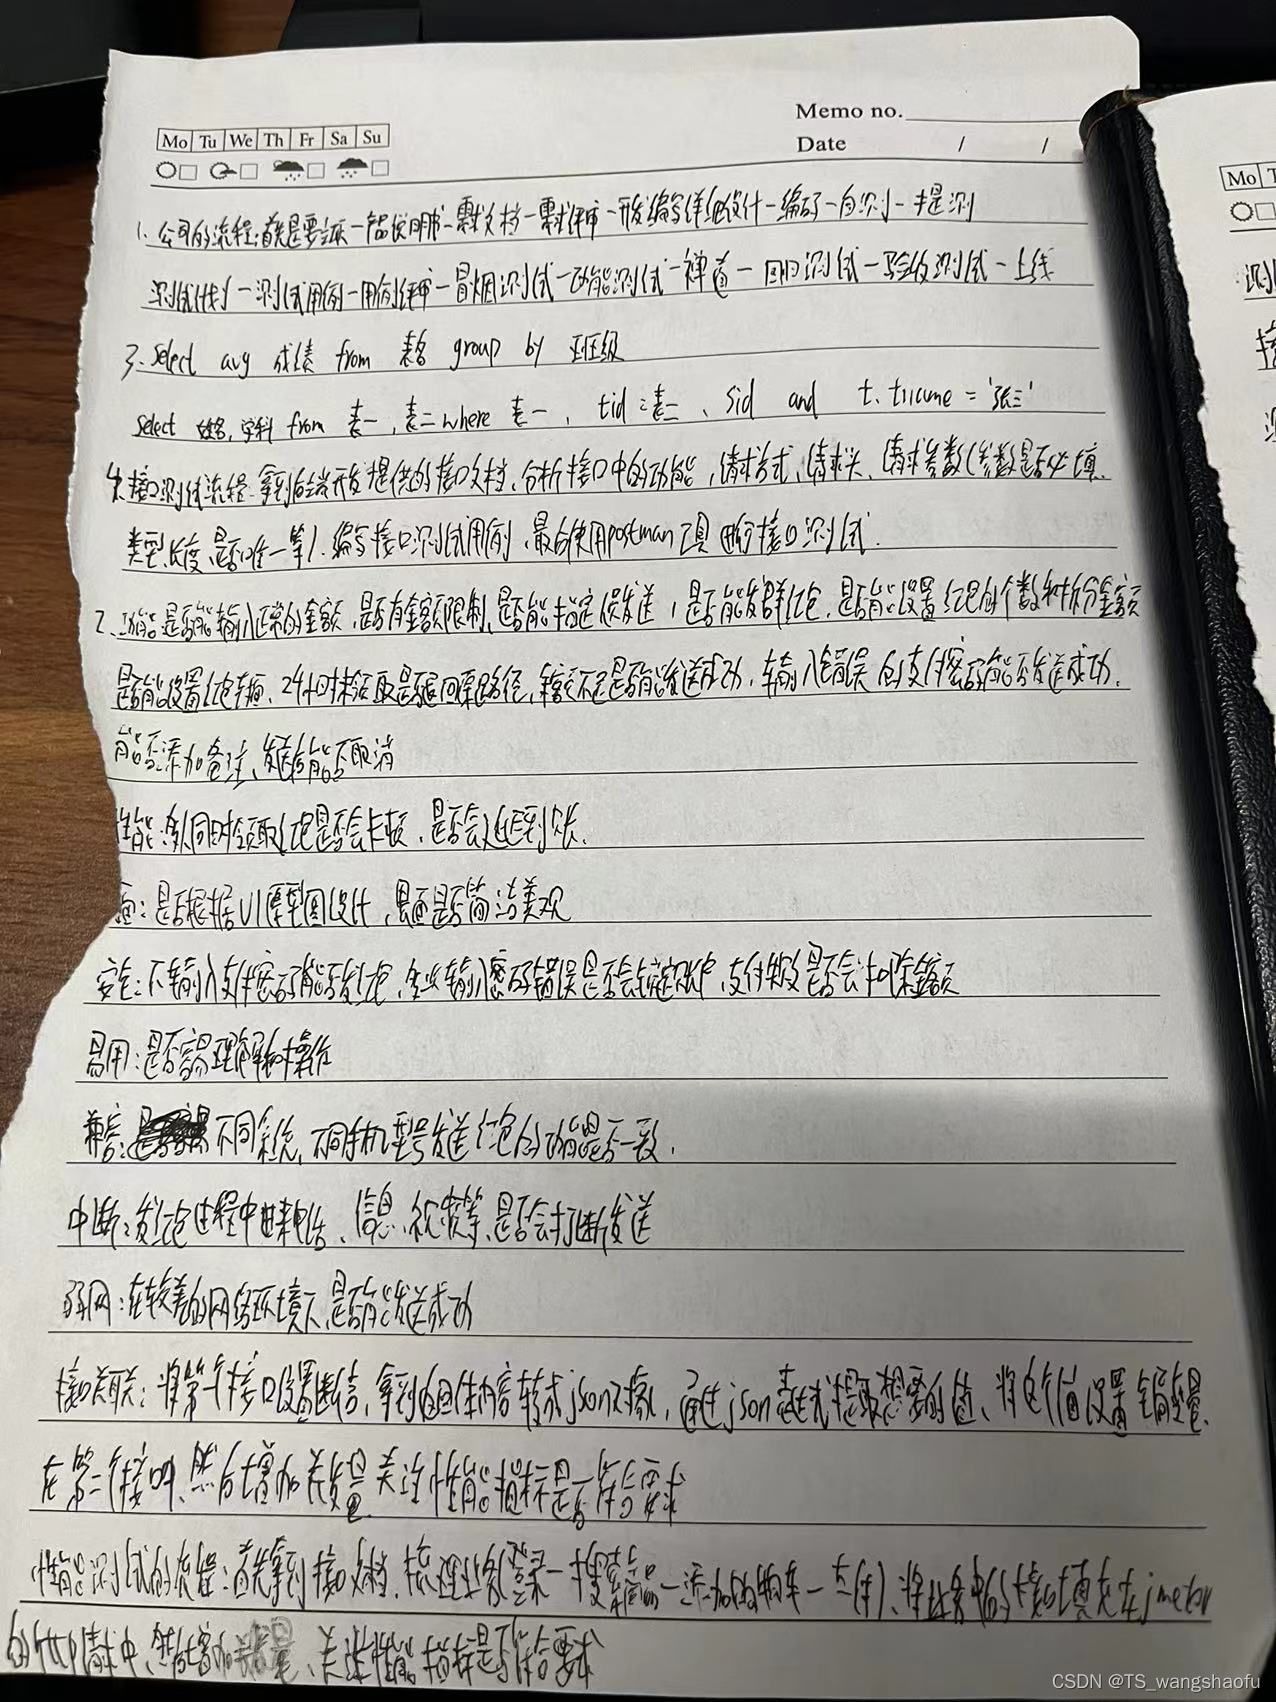 Memo no.
Date / /
Mo Tu We Th Fr Sa Su
Mo T
1. 公司的流程:首先是要立项一产品说明书一需求文档一需求评审一开发编写详细设计一编码一自测一提测
测试计划一测试用例一用例评审一冒烟测试一功能测试一禅道一回归测试一验收测试一上线
3. Select avg 成绩 from 表名 group by 班级
Select 姓名,学科 from 表一,表二 where 表一、tid = 表二、sid and t. = '张三'
4.接口测试流程:拿到后端开发提供的接口文档、分析接口中的功能,请求方式、请求头、请求参数(参数是否必填、
类型、长度、是否唯一等)、编写接口测试用例,最后使用postman工具进行接口测试.
2.功能:是否能输入正常的金额,是否有金额限制,是否能指定人发送,是否能发群红包,是否能设置红包个数和拆分金额
是否能设置红包封面、24小时未领取是否退回原路径,余额不足是否能发送成功,输入错误的支付密码能否发送成功.
能否添加备注、发送后能否取消
性能:多人同时领取红包是否会卡顿,是否会延迟到账.
面:是否根据UI原型图设计,界面是否简洁美观
安全:不输入支付密码能否发红包,多次输入密码错误是否会锁定账户,支付失败是否会扣除金额
易用:是否容易理解和操作
兼容:不同系统、不同手机型号发送红包的功能是否一致.
中断:发红包过程中来电话、信息、视频等,是否会打断发送
弱网:在较差的网络环境下,是否能发送成功
接口关联:将第一个接口设置断言,拿到返回体内容转成json对象,通过json表达式提取想要的值、将这个值设置全局变量、
在第二个接口、然后增加并发量关注性能指标是否符合要求
性能测试的流程:首先拿到接口文档、梳理业务(登录一搜索商品一添加购物车一支付)、将业务中的接口填充在jmeter
的http请求中、然后增加并发量、关注性能指标是否符合要求
测
CSDN @TS_wangshaofu